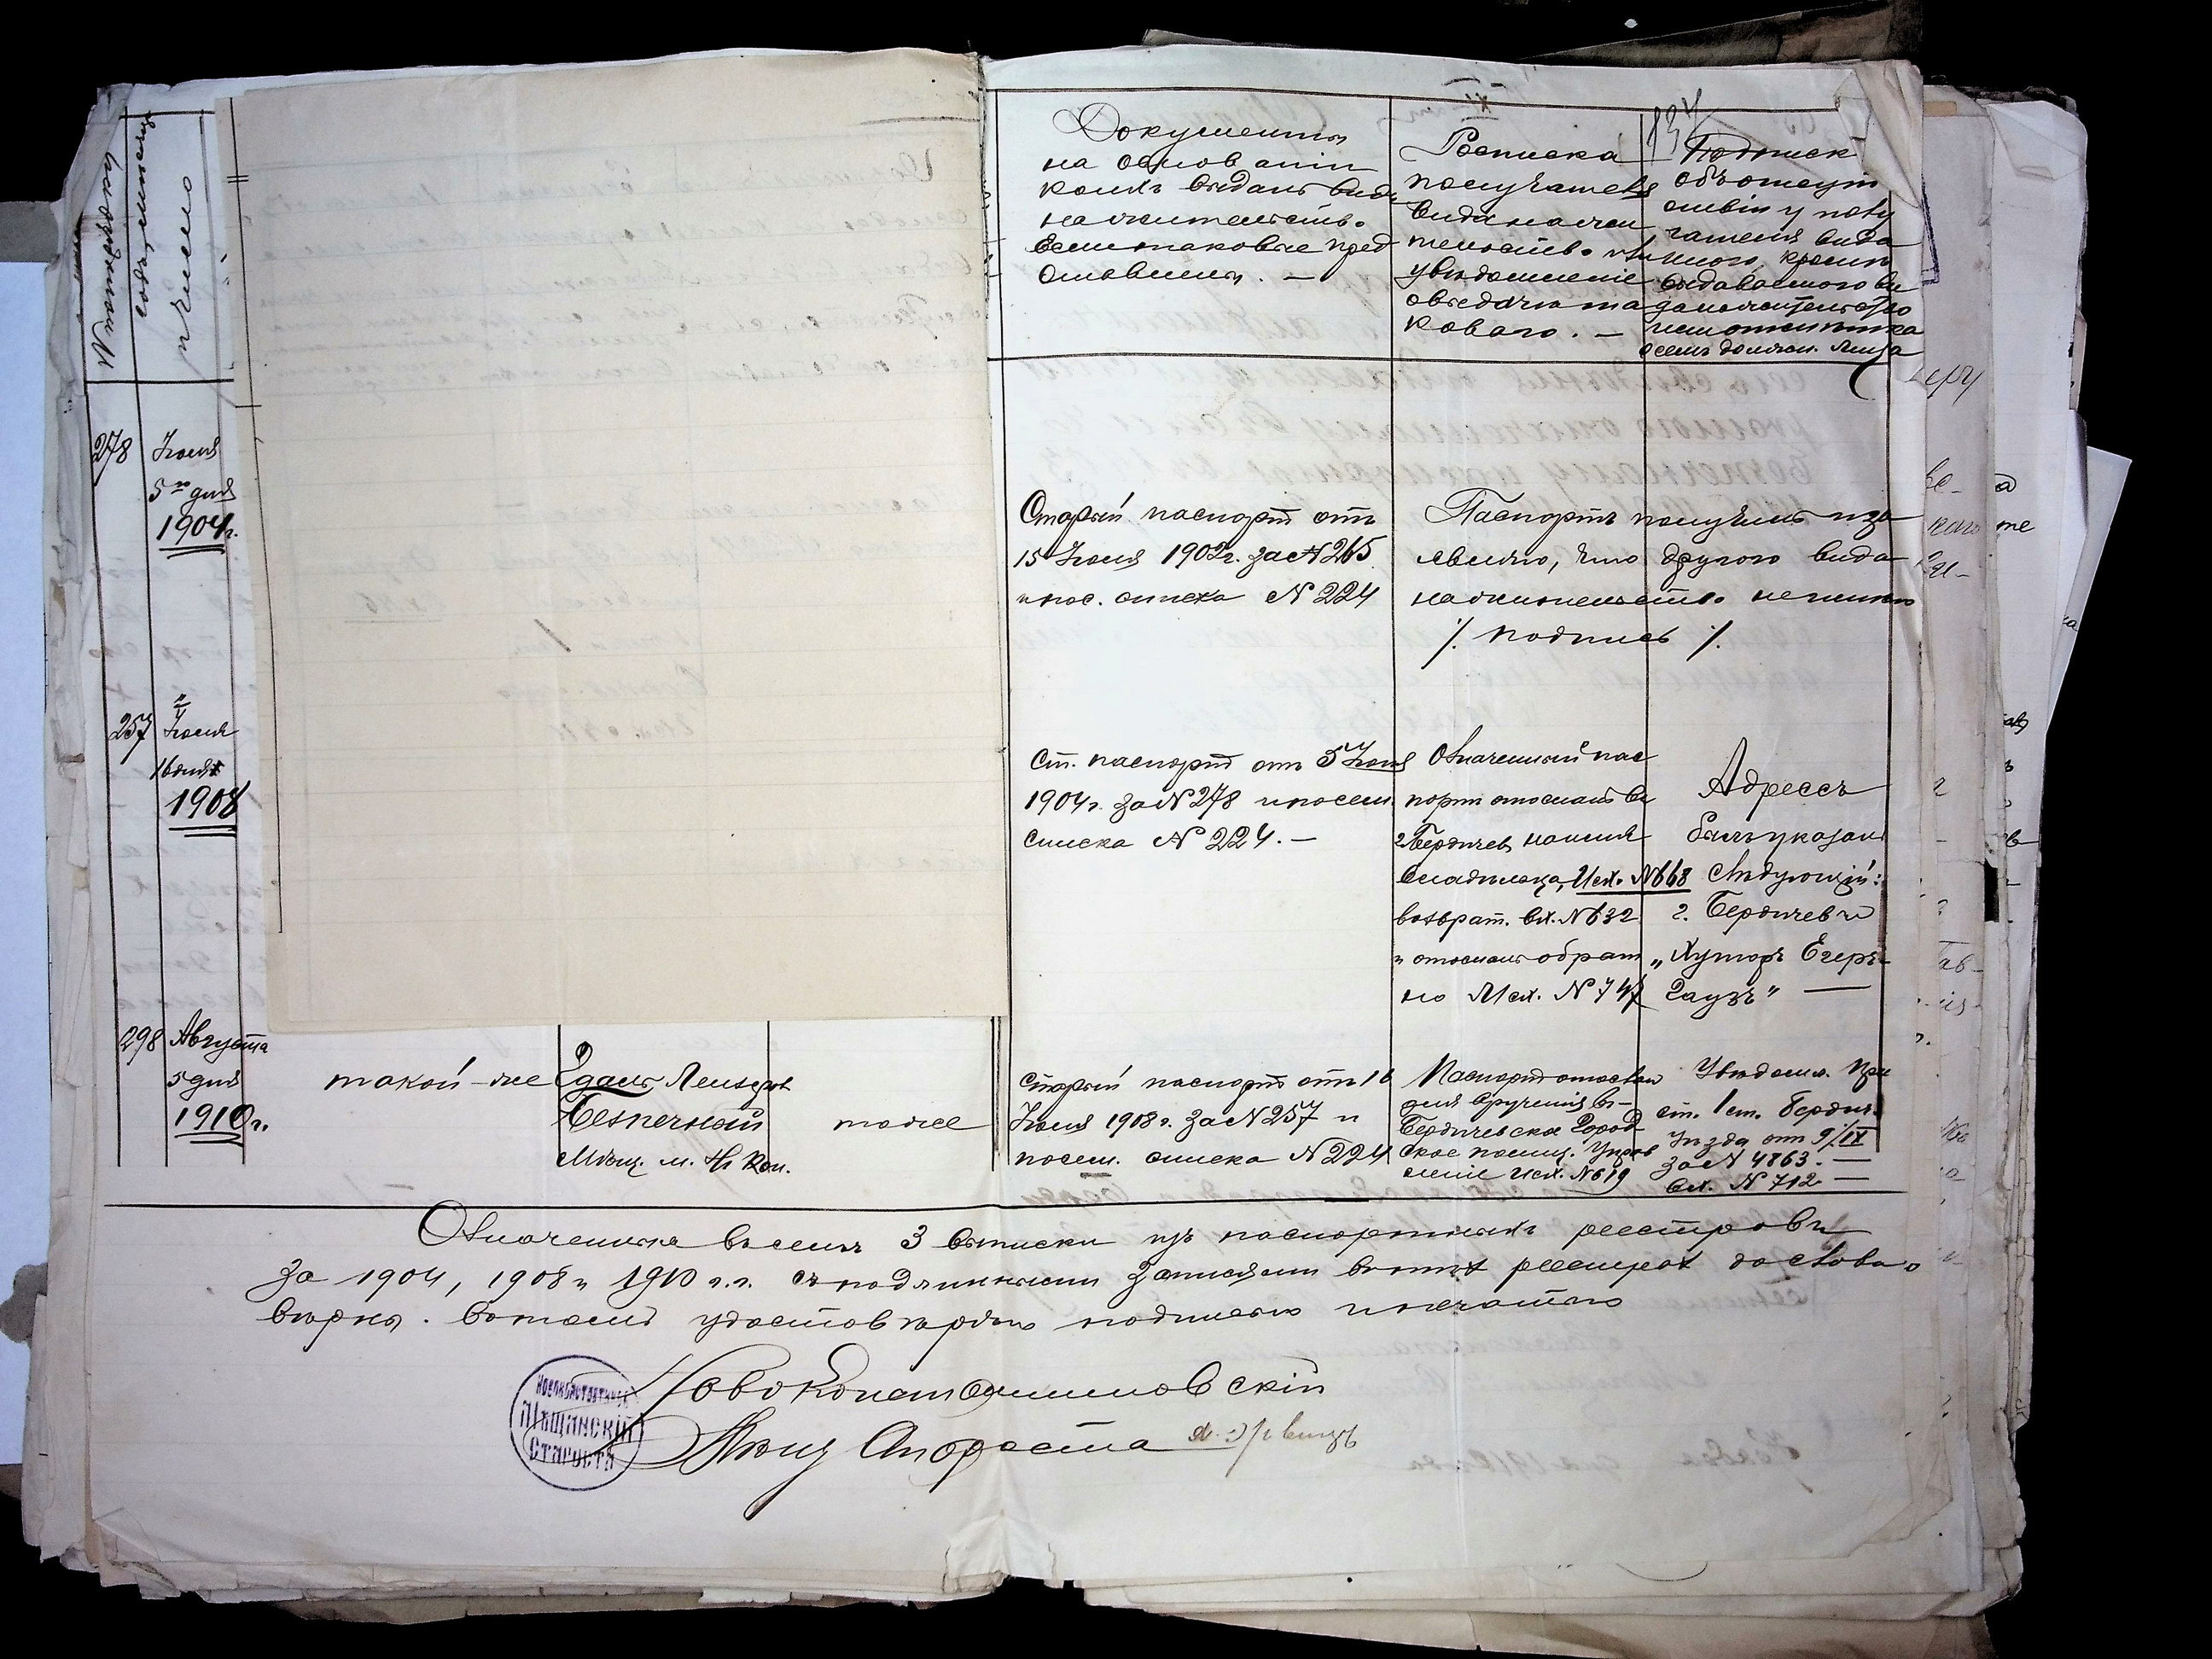 № по порядку
Годъ, мѣсяцъ
и число
Документы
на основаніи
коихъ выданъ видъ
на жительство.
Если таковые пред
ставлены. —
XI
Росписка
получателя
вида на жи
тельство или
увѣдомленіе
о выдачи та
коваго. —
137
Подписк
объ отсут
ствіи у полу
чателя вида
иного, кромѣ
выдаваемого ви
да на жительство
или отмѣтка
о семъ должн. лица
278
Іюня
5го дня
1904 г.
Старый паспортъ отъ
15 Іюня 1902 г. за № 265
и пос. списка № 224
Паспортъ получилъ и за
являю, что другого вида
на жительство не имѣю
/. подпись /.
257
Іюня
16 дня
1908
Ст. паспортъ отъ 5 Іюня
1904 г. за № 278 и посем.
списка № 224. —
Означенный пас
портъ отосланъ въ
г. Бердичев на имя
владѣльца, Исх. № 668
возврат. Вх. № 632
и отосланъ обрат
но Исх. № 747
Адрессъ
былъ указанъ
слѣдующій:
г. Бердичевъ
„Хуторъ Егеръ-
Гаузъ" —
298
Августа
5 дня
1910 г.
такой-же
Гдаль Лейзеровъ
Безпечный
Мѣщ. м. Н. Кон.
тоже
Старый паспортъ отъ 16
Іюня 1908 г. за № 257 и
посем. списка № 224
Паспортъ отосланъ
для врученія въ-
Бердичевское Город
ское полиц. Управ
леніе Исх. № 619
Увѣдомл. При
ст. 1 ст. Бердич.
Уѣзда отъ 9/IX
за № 4863. —
Вх. № 712 —
Означенныя въ семъ 3 выписки изъ паспортныхъ реестровъ
за 1904, 1908 и 1910 г.г. съ подлинными записями въ тѣхъ реестрахъ достово-
вѣрны. Въ томъ удостовѣряю подписью и печатью
Новоконстантиновскій
Мѣщ Староста
Новоконстантинов
Мѣщанскій
Староста